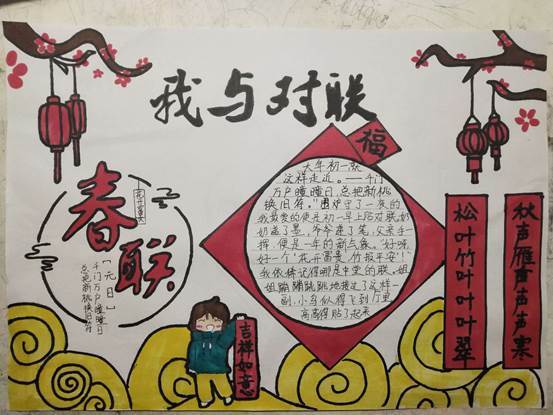 我与对联
福
春联
元日
千门万户曈曈日
总把新桃换旧符
大年初一就
这样走近。——千门
万户曈曈日,总把新桃
换旧符。"围炉守了一夜的
我最爱的便是初一早上贴对联,奶
奶
爷爷
挥,便是一年的新气象。"好呀,
好一个'花开富贵,竹报平安'!"
我依稀记得哪是中堂的联。姐
姐蹦蹦跳跳地接过了这样一
副,小鸟似得飞到厅里
高高得贴了起来
吉祥如意
松叶竹叶叶叶翠
秋声雁声声声寒